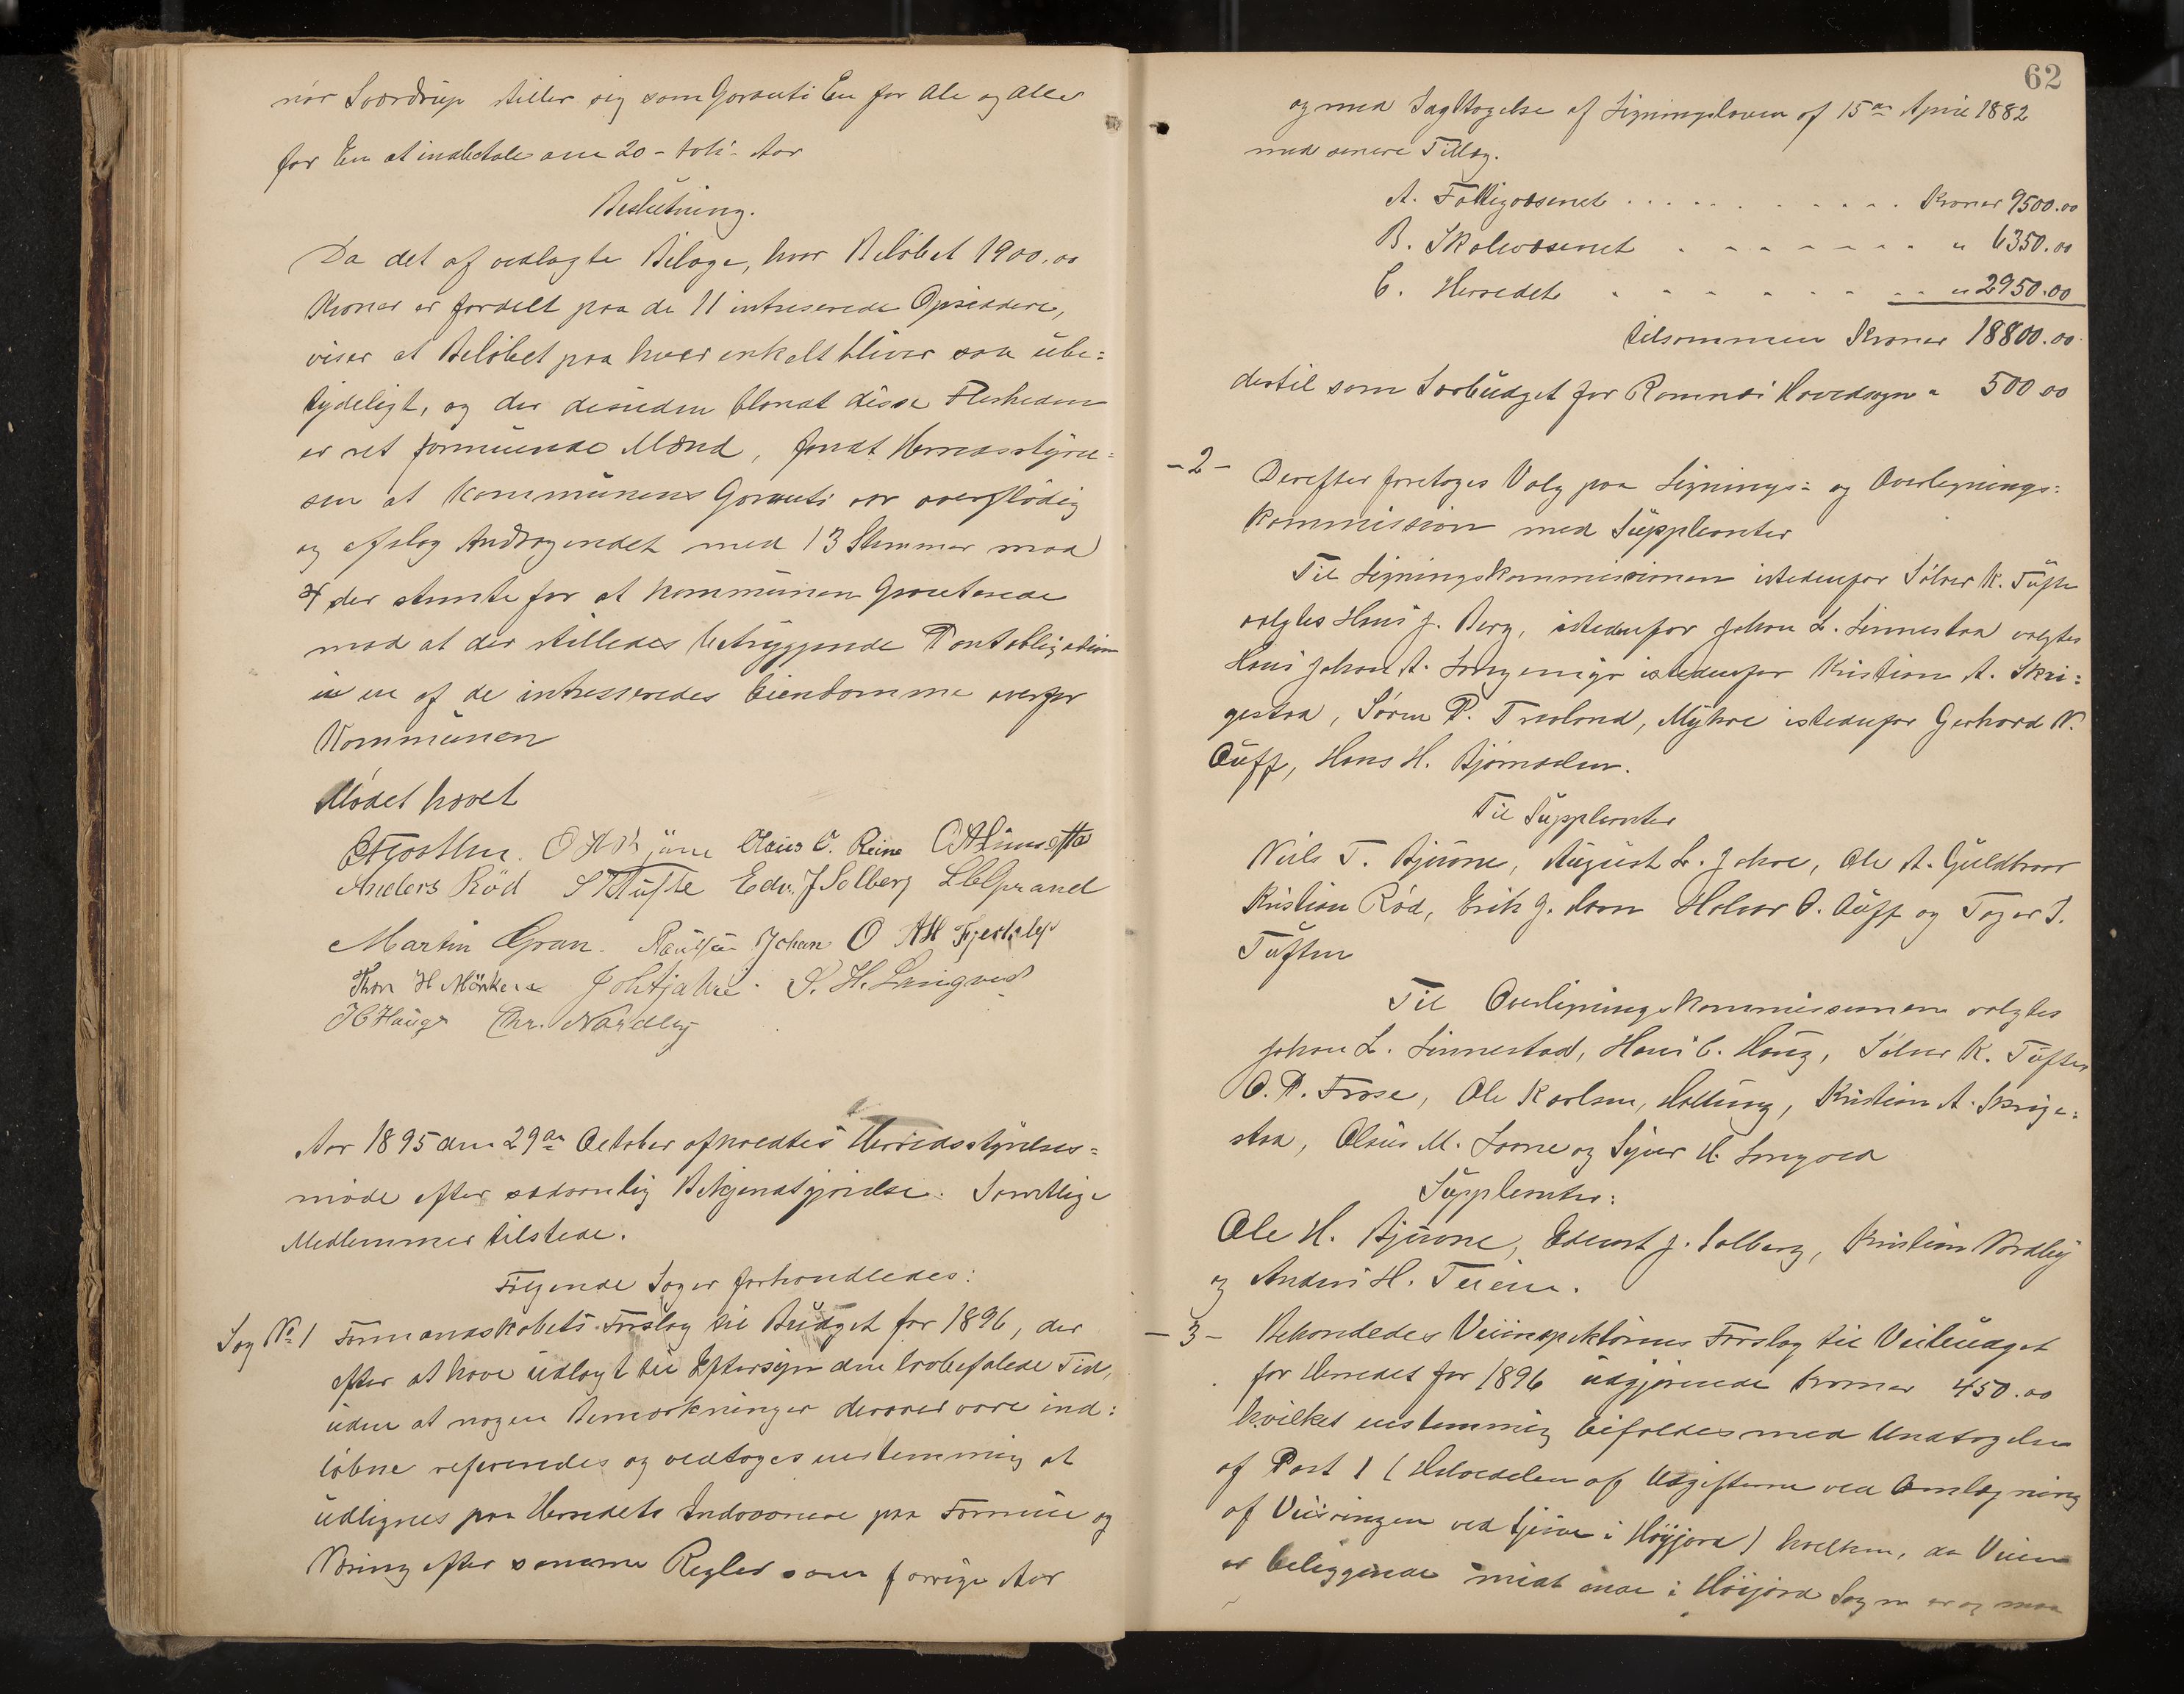 nør Sværdrup stiller sig som Garanti En for Alle og Alle
for En at indbetale om 20 - tolv - Aar
Beslutning.
Da det af vedlagte Bilage, hvor Beløbet 1900.00
Kroner er fordelt paa de 11 intreserede Opsiddere,
viser at Beløbet paa hver enkelt bliver saa ube=
tydeligt, og der desuden blandt disse Flerheden
er ret formuende Mænd, fandt Herredsstyrel=
sen at Kommunens Garanti var overflødig
og afslog Andragendet med 13 Stemmer mod
4 der stemte for at Kommunen Garanterede
mod at der stilledes betryggende Pantobligation
i en af de intresseredes Eiendomme overfor
Kommunen
Mødet hævet
Claus O. Reine
Anders Rød S K Tufte Edv. J Solberg
Martin Gran. Johan O
Thor H S. H. Langved
H C Hauge Chr. Nordby
Aar 1895 den 29de October afholdtes Herredsstyrelses=
møde efter sedvanlig Bekjendtgjørelse. Samtlige
Medlemmer tilstede.
Følgende Sager forhandledes:
Sag No 1 Formandskabets Forslag til Budget for 1896, der
efter at have udlagt til Eftersyn den lovbefalede Tid,
uden at nogen Bemærkninger derover vare ind=
løbne refereredes og vedtoges enstemmig at
udlignes paa Herredets Indvaanere paa Formue og
Næring efter samme Regler som forrige Aar
62
og med Iagttagelse af Ligningsloven af 15de April 1882
med senere Tillæg.
A. Fattigvæsenet . . . . . . . . . . . Kroner 9500.00
B. Skolevæsenet . - - - - - - - " 6350.00
C. Herredet - - - - - - - - " 2950.00
tilsammen Kroner 18800.00
dertil som Særbudget for Ramnæs Hovedsogn " 500 00
- 2 - Derefter foretoges Valg paa Lignings= og Overlignings=
kommission med Supleanter
Til Ligningskommissionen istedenfor Sølver K. Tufte
valgtes Hans J. Berg, istedenfor Johan L. Linnestad valgtes
Hans Johan A. istedenfor Kristian A. Skri=
gestad, Søren P. Treland, Myhre istedenfor Gerhard N.
Auff, Hans H. Bjørndalen.
Til Suppleanter
Niels T. Bjuerne, August L. Jahre, Ole A. Guldhav
Kristian Rød, Erik J. Halvor O. Auff og Tager S.
Tuften
Til Overligningskommissionen valgtes
Johan L. Linnestad, Hans C. Haug, Sølver K. Tuften
O. P. Ole Karlsen, Kristian A. Skrige=
stad, Claus M. og Syver H. Langved
Suppleanter:
Ole H. Bjuerne, Edvart J. Solberg, Kristian Nordby
og Anders H. Teien.
- 3 - Behandledes Veiinspektørens Forslag til Veibudget
for Herredet for 1896 udgjørende Kroner 450.00
hvilket enstemmig bifaldes med Undtagelse
af Post 1 (Halvedelen af Udgifterne ved Omlægning
af Veisvingen ved i Høijord) hvilken, da Veien
er beliggende midt inde i Høijord Sogn og maa